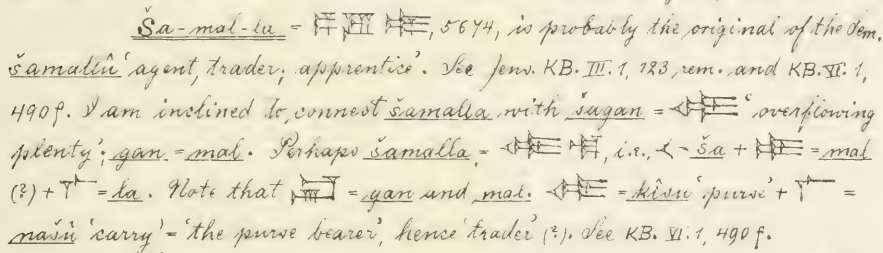 Ša-mal-la = , 5674, is probably the original of the Sem.
šamallû 'agent, trader; apprentice'. See Jens. KB. III. 1, 123 rem. and KB. VI. 1,
490 f. I am inclined to connect šamalla with šagan = 'overflowing
plenty'; gan = mal. Perhaps šamalla = , i.e., = ša + = mal
(?) + = la. Note that = gan and mal. = kîsu 'purse' + =
našû 'carry' = 'the purse bearer', hence 'trader' (?). See KB. VI. 1, 490 f.